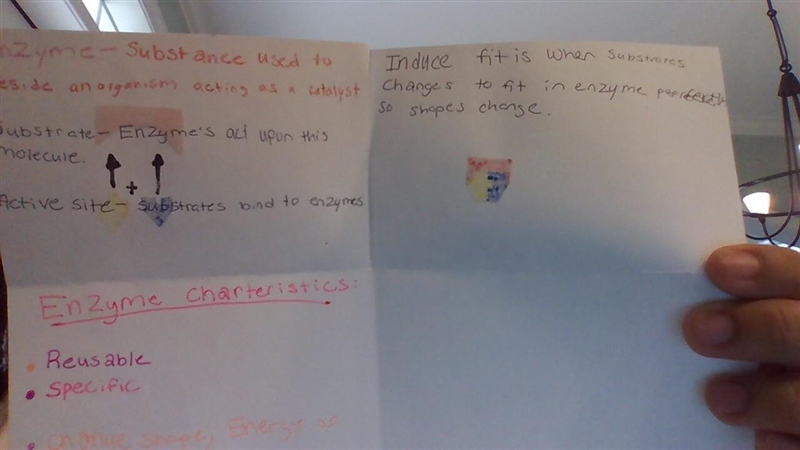 nzyme - Substance used to
eside an organism acting as a catalyst
Substrate - Enzyme's act upon this
molecule.
+
Active site - Substrates bind to enzymes
Enzyme Charteristics:
• Reusable
• Specific
• Change shape, Energy of
Induce fit is when substrates
changes to fit in enzyme perfectly
so shapes change.